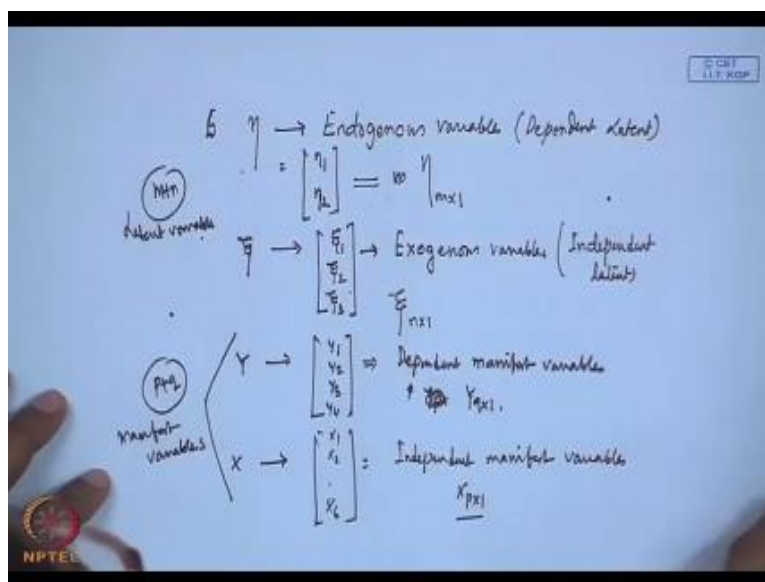 © CET
I.I.T. KGP
η → Endogenous variables (Dependent Latent)
= [η1 η2] = η m×1
m+n
Latent variables
ξ → [ξ1 ξ2 ξ3] → Exogenous variables (Independent
latent)
ξ n×1
p+q
manifest
variables
Y → [Y1 Y2 Y3 Y4] ⇒ Dependent manifest variables
Y q×1.
X → [X1 X2 . X6] = Independent manifest variables
X p×1
NPTEL